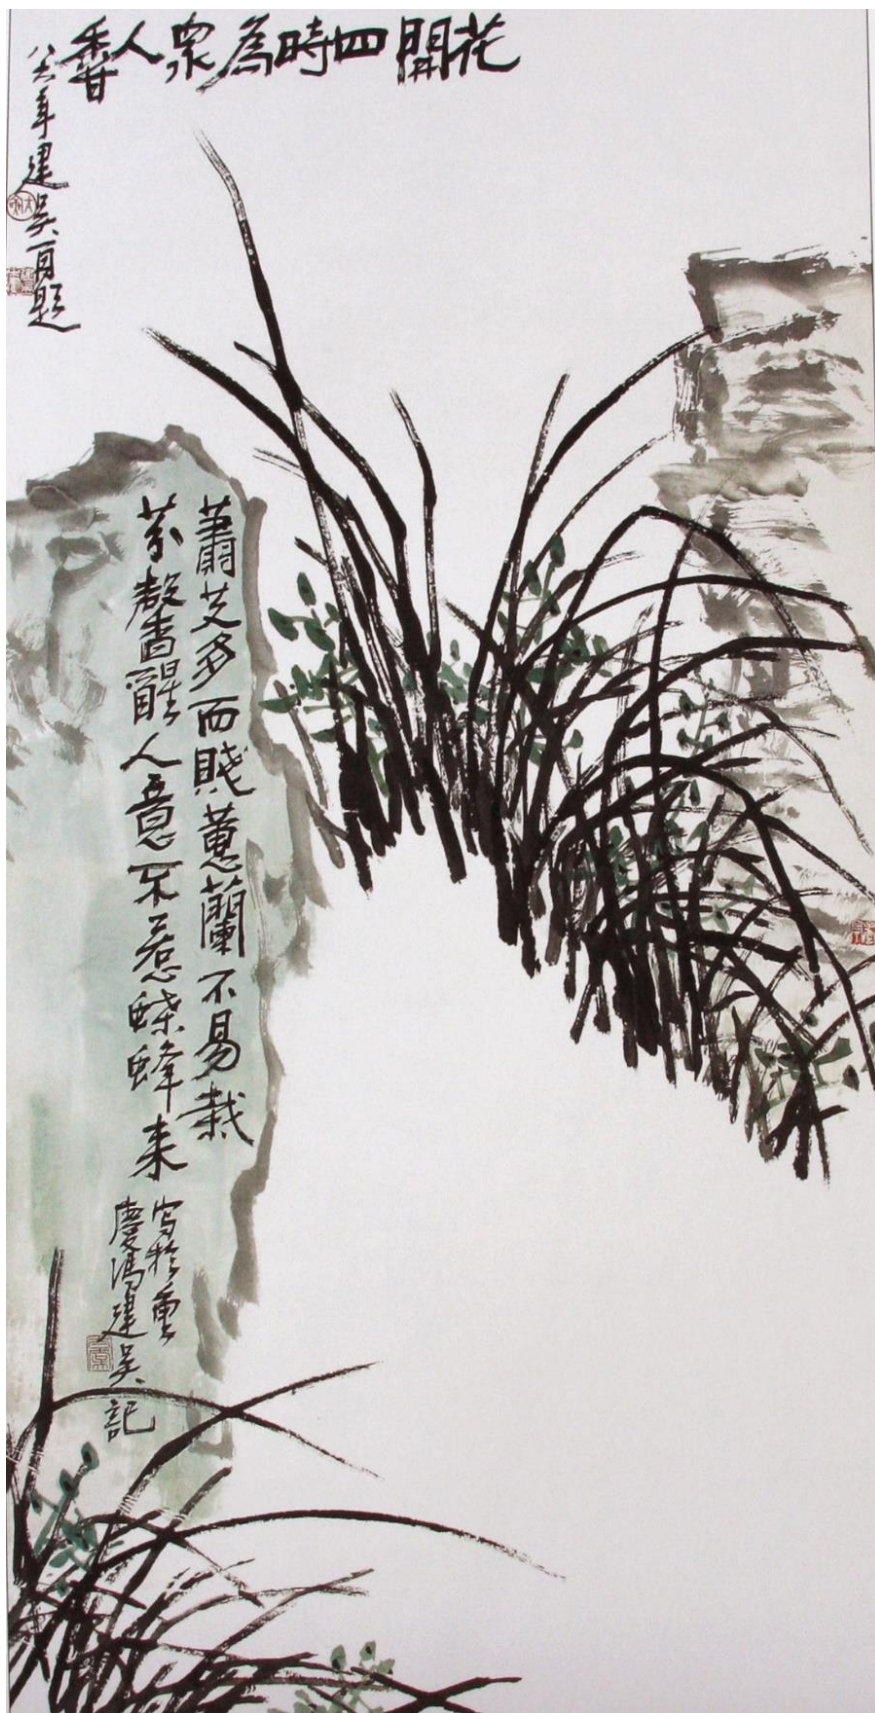 花開四時為眾人香
年建吴題
蕭艾多而賤蕙蘭不易栽
芬馨醒人意不惹蝶蜂来
写於重
慶馮建吴記